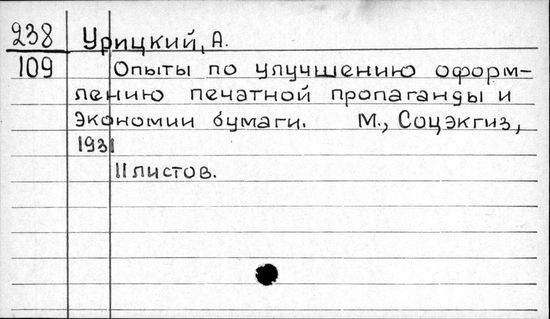 238 Урицкий, А.
109 Опыты по улучшению оформ-
лению печатной пропаганды и
экономии бумаги. М., Соцэкгиз,
1931
11 листов.